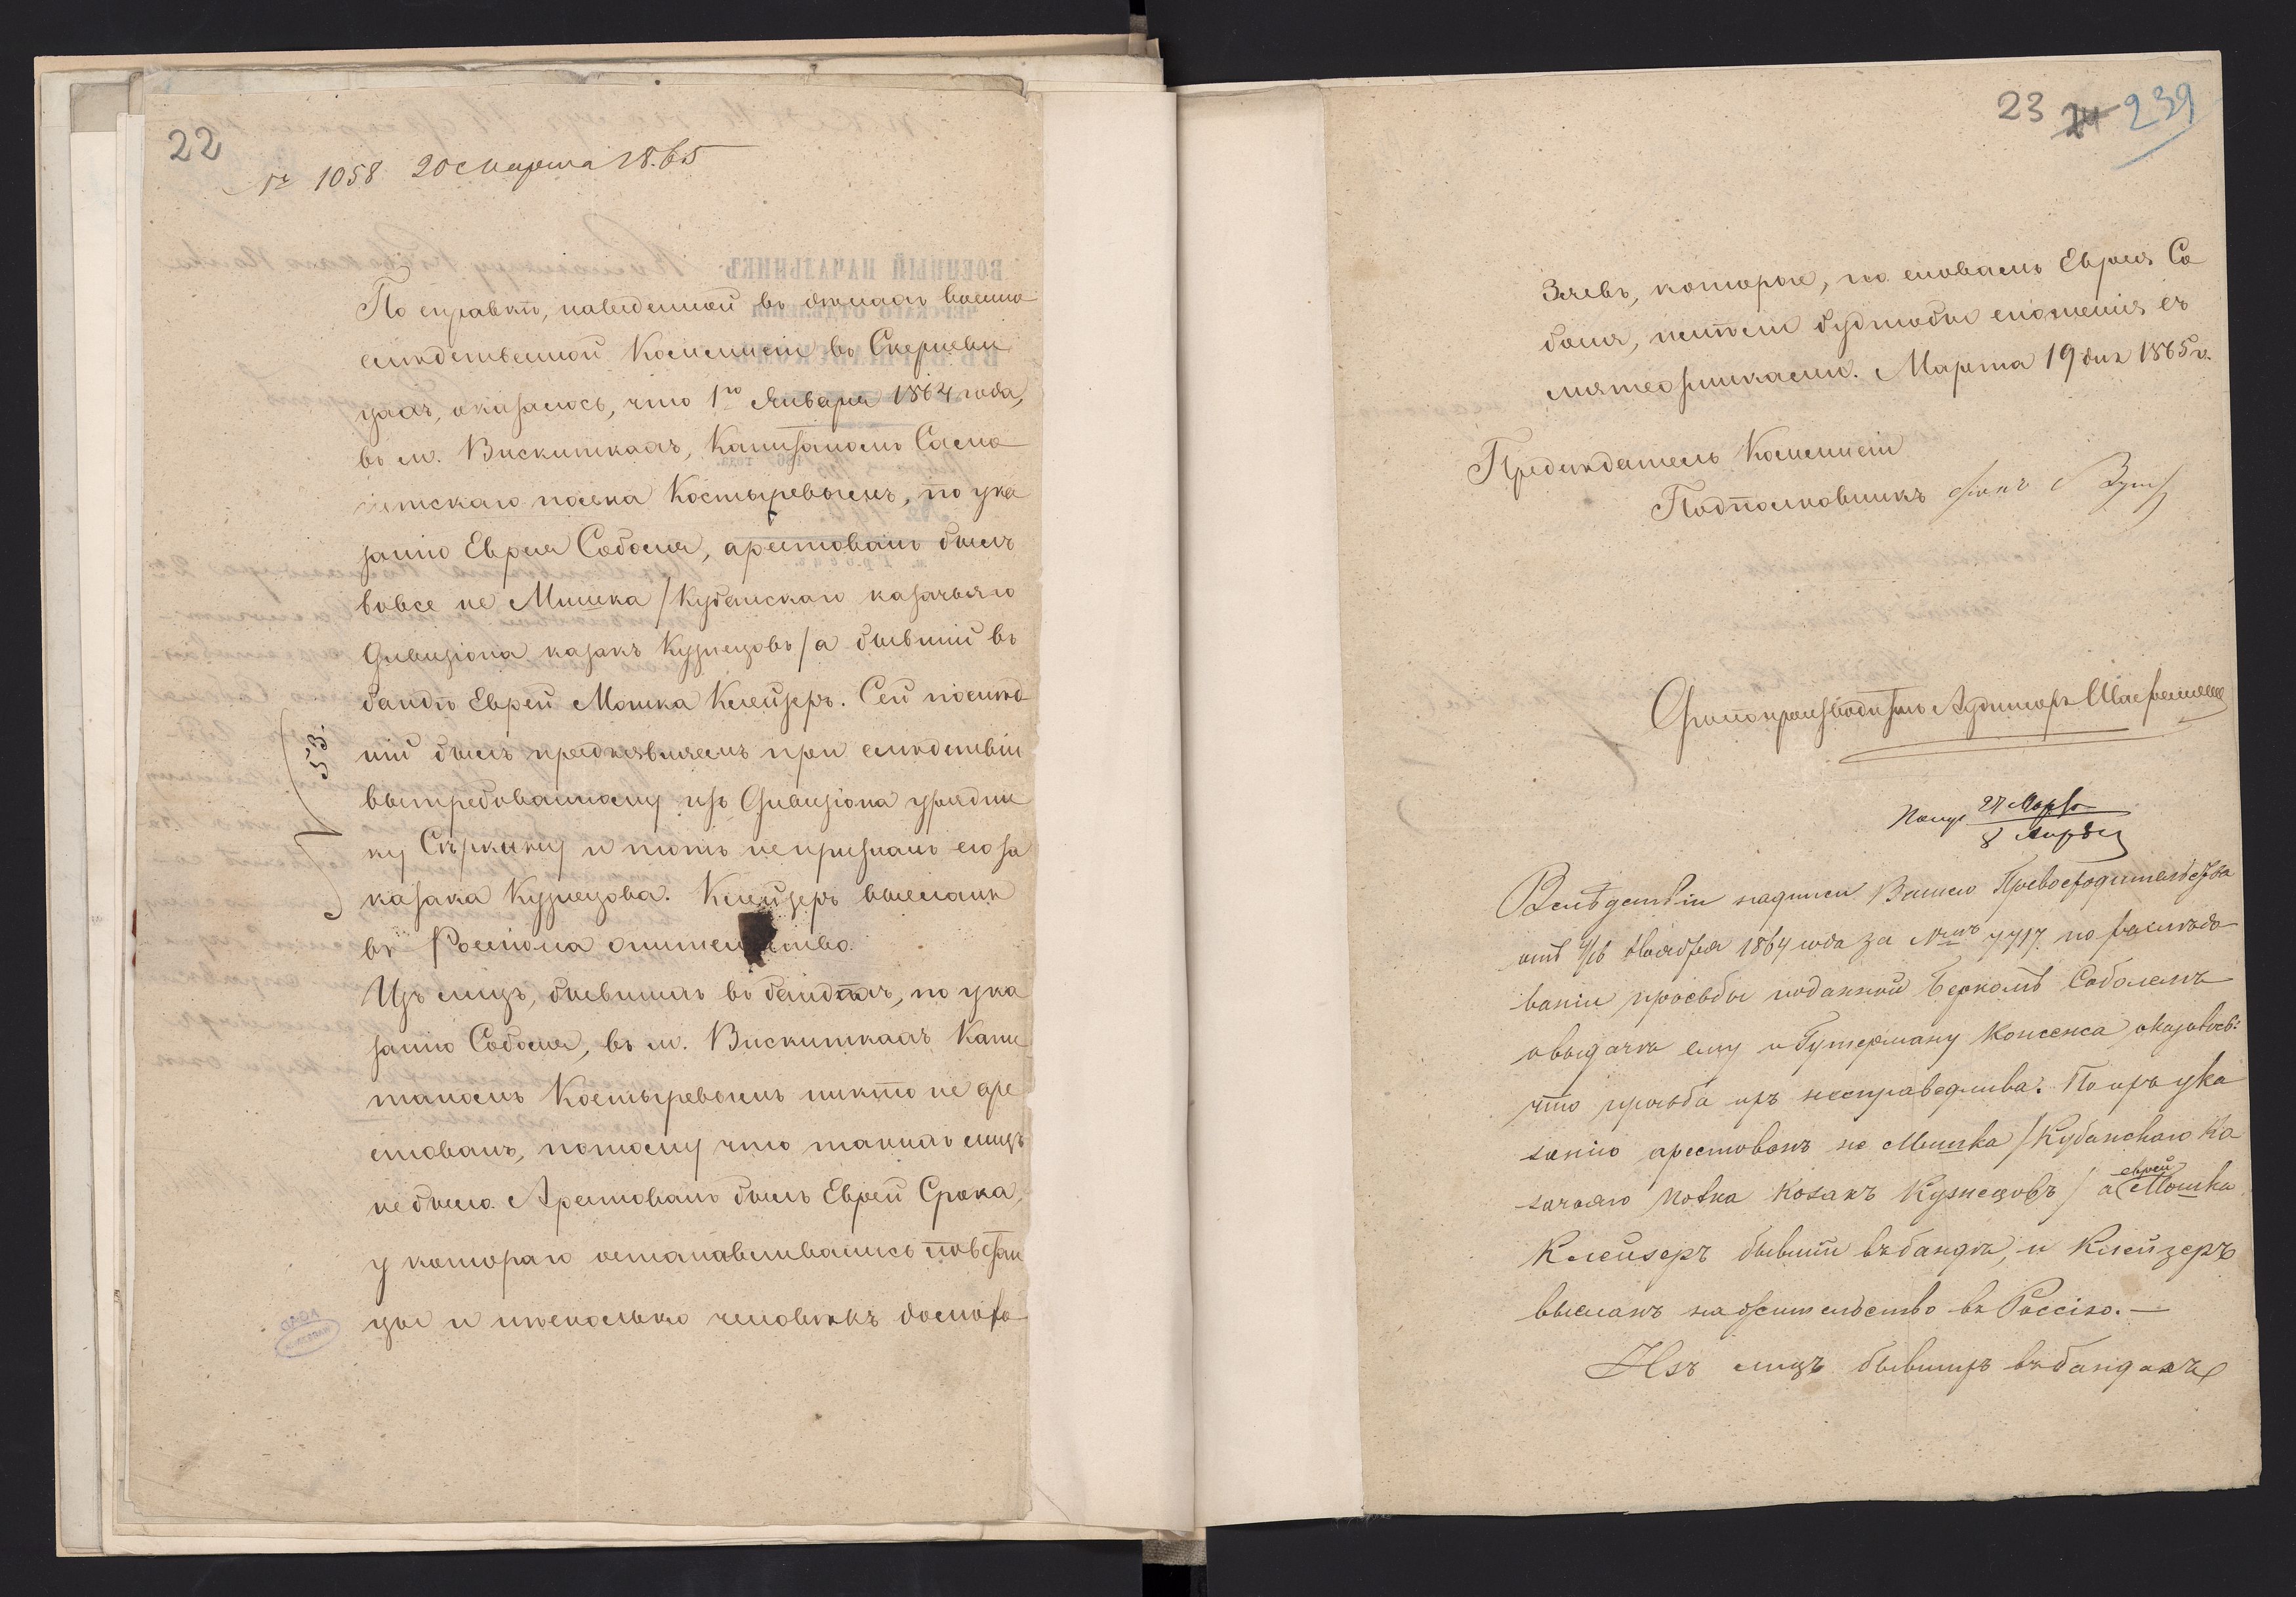 22
№ 1058 20 Марта 1865
По справкѣ, наведенной въ дѣлахъ военно
слѣдственной Коммисіи въ Скерневи
цахъ, оказалось, что 1го Января 1864 года,
въ м. Вискиткахъ, Капитаномъ Само
гитскаго полка Костыревымъ, по ука
занію Еврея Соболя, арестованъ былъ
вовсе не Мишка /Кубанскаго казачьяго
Дивизіона казакъ Кузнецовъ/ а бывшій въ
бандѣ Еврей Мошка Клейзеръ. Сей послѣд
ній былъ предъявляемъ при слѣдствіи
вытребованному изъ Дивизіона урядни
ку и тотъ непризналъ его за
казака Кузнецова. Клейзеръ высланъ
въ Россію на жительство.
Изъ лицъ, бывшихъ въ бандахъ, по ука
занію Соболя, въ м. Вискиткахъ Капи
таномъ Костыревымъ никто не аре
стованъ, потому что такихъ лицъ
не было. Арестованъ былъ Еврей Срока,
у котораго останавливались повстан
цы и нѣсколько человѣкъ домохо
553.
23 24 239
зяевъ, которые, по словамъ Еврея Со
боля, имѣли будтобы сношенія съ
мятежниками. Марта 19 дня 1865 г.
Предсѣдатель Коммисіи
Подполковникъ фонъ
Дѣлопроизводитель Аудиторъ
Полу 27 Марта
8 Апрѣля
Вслѣдствіи надписи Вашего Превосходительства
отъ 4/16 Ноября 1864 года за №мъ 7717 по разслѣдо
ванію просьбы поданной Беркомъ Соболемъ
о выдачѣ ему и Гутерману Консенса, оказалось:
что просьба ихъ несправедлива. По ихъ ука
занію арестованъ не Мишка /Кубанскаго Ка
зачьяго Полка Козакъ Кузнецовъ/ а еврей Мошка
Клейзеръ бывшій въ бандѣ, и Клейзеръ
высланъ на жительство въ Россію.—
Изъ лицъ бывшихъ въ бандахъ